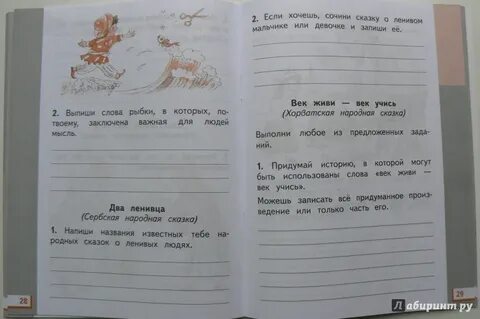 2. Выпиши слова рыбки, в которых, по-
твоему, заключена важная для людей
мысль.
Два ленивца
(Сербская народная сказка)
1. Напиши названия известных тебе на-
родных сказок о ленивых людях.
28
2. Если хочешь, сочини сказку о ленивом
мальчике или девочке и запиши её.
Век живи — век учись
(Хорватская народная сказка)
Выполни любое из предложенных зада-
ний.
1. Придумай историю, в которой могут
быть использованы слова «век живи —
век учись».
Можешь записать всё придуманное произ-
ведение или только часть его.
29
Лабиринт.ру